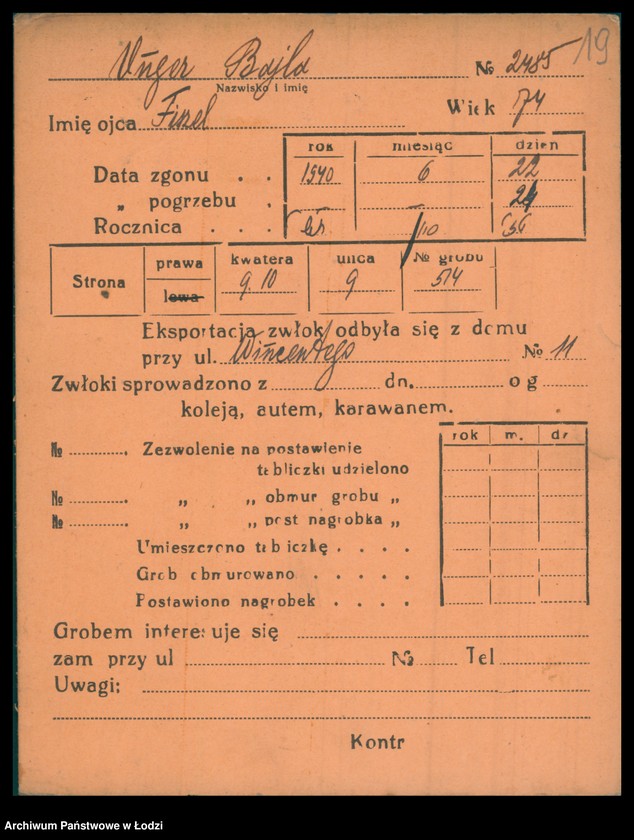 19
Unger Bajla № 2485
Nazwisko i imię
Imię ojca Fizel Wiek 74
rok miesiąc dzień
Data zgonu . . 1940 6 22
„ pogrzebu . 24
Rocznica . . . 10
Strona prawa lewa kwatera 9.10 ulica 9 № grobu 514
Eksportacja zwłok odbyła się z domu
przy ul. Wincentego № 11
Zwłoki sprowadzono z dn. o g
koleją, autem, karawanem.
rok m. dz
№ Zezwolenie na postawienie
tabliczki udzielono
№ „ „ obmur grobu „
№ „ „ post nagrobka „
Umieszczono tabliczkę . . . .
Grób obmurowano . . . . .
Postawiono nagrobek . . . .
Grobem interesuje się
zam przy ul № Tel
Uwagi:
Kontr
Archiwum Państwowe w Łodzi